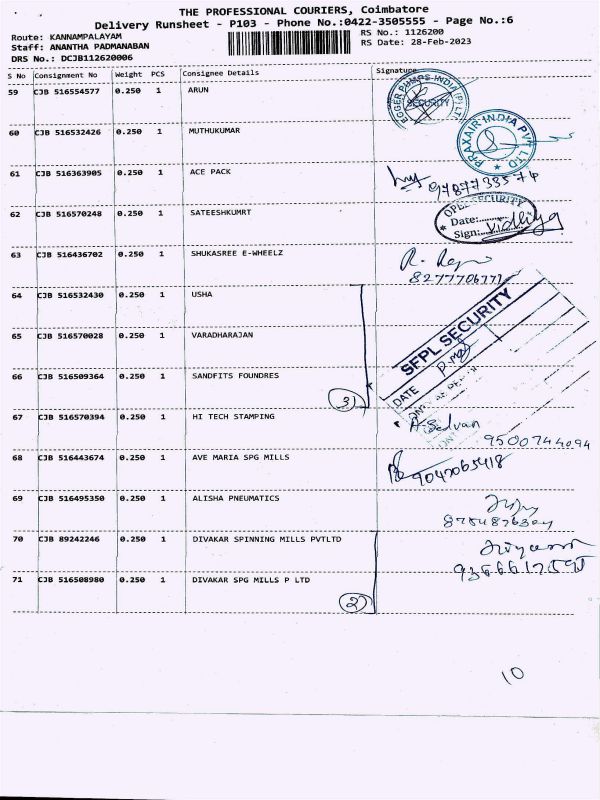 THE PROFESSIONAL COURIERS, Coimbatore
Delivery Runsheet - P103 - Phone No.:0422-3505555 - Page No.:6
Route: KANNAMPALAYAM RS No.: 1126200
Staff: ANANTHA PADMANABAN RS Date: 28-Feb-2023
DRS No.: DCJB112620006
S No Consignment No Weight PCS Consignee Details Signature
59 CJB 516554577 0.250 1 ARUN
EGGER PUMPS INDIA (P) LTD
SECURITY
60 CJB 516532426 0.250 1 MUTHUKUMAR
PRAXAIR INDIA PVT LTD
61 CJB 516363905 0.250 1 ACE PACK
9787733574
62 CJB 516570248 0.250 1 SATEESHKUMRT
SECURITY
Date:
Sign: Vidhya
63 CJB 516436702 0.250 1 SHUKASREE E-WHEELZ
R.
64 CJB 516532430 0.250 1 USHA
65 CJB 516570028 0.250 1 VARADHARAJAN
SFPL SECURITY
66 CJB 516509364 0.250 1 SANDFITS FOUNDRES
DATE
3
67 CJB 516570394 1 HI TECH STAMPING
0.250
9500744094
68 CJB 516443674 0.250 1 AVE MARIA SPG MILLS
9042065418
69 CJB 516495350 0.250 1 ALISHA PNEUMATICS
70 CJB 89242246 0.250 1 DIVAKAR SPINNING MILLS PVTLTD
71 CJB 516508980 0.250 1 DIVAKAR SPG MILLS P LTD
2
10